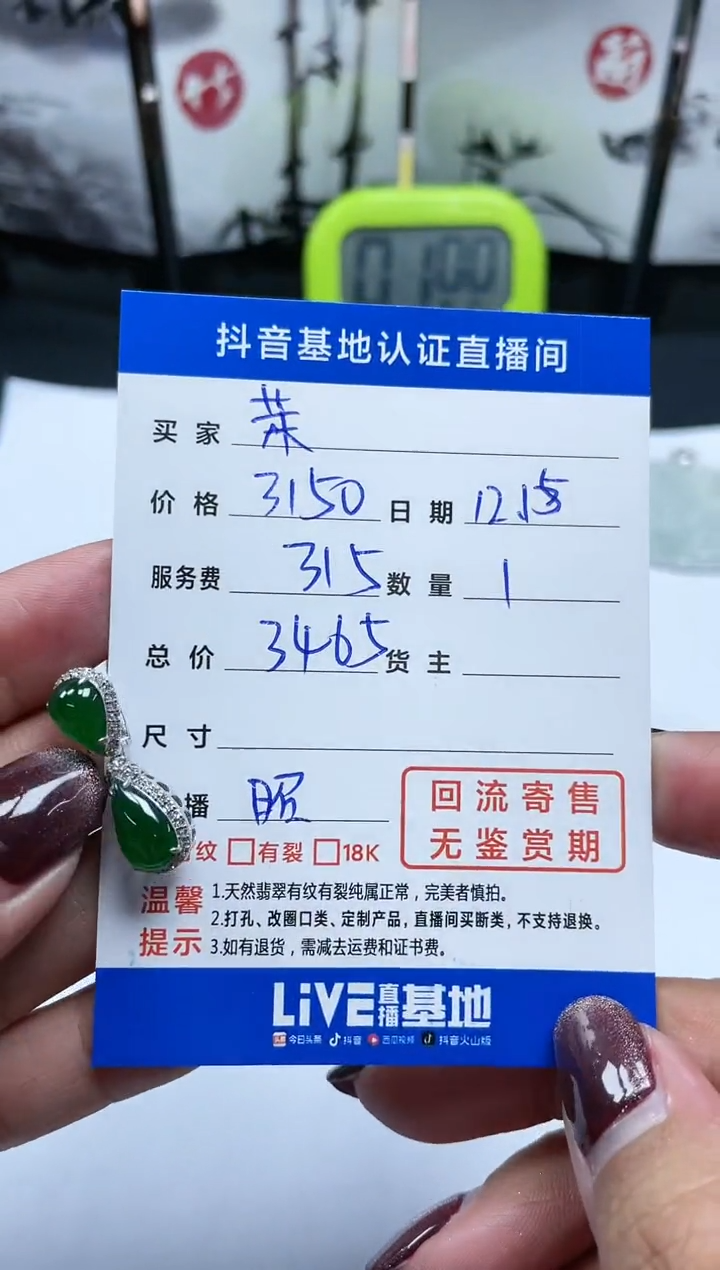 01:00
抖音基地认证直播间
买家 荣
价格 3150 日期 12.15
服务费 315 数量 1
总价 3465 货主
尺寸
播 昭
回流寄售
无鉴赏期
纹 □有裂 □18K
温馨提示
1.天然翡翠有纹有裂纯属正常，完美者慎拍。
2.打孔、改圈口类、定制产品，直播间买断类，不支持退换。
3.如有退货，需减去运费和证书费。
LiVE直播基地
今日头条 抖音 西瓜视频 抖音火山版